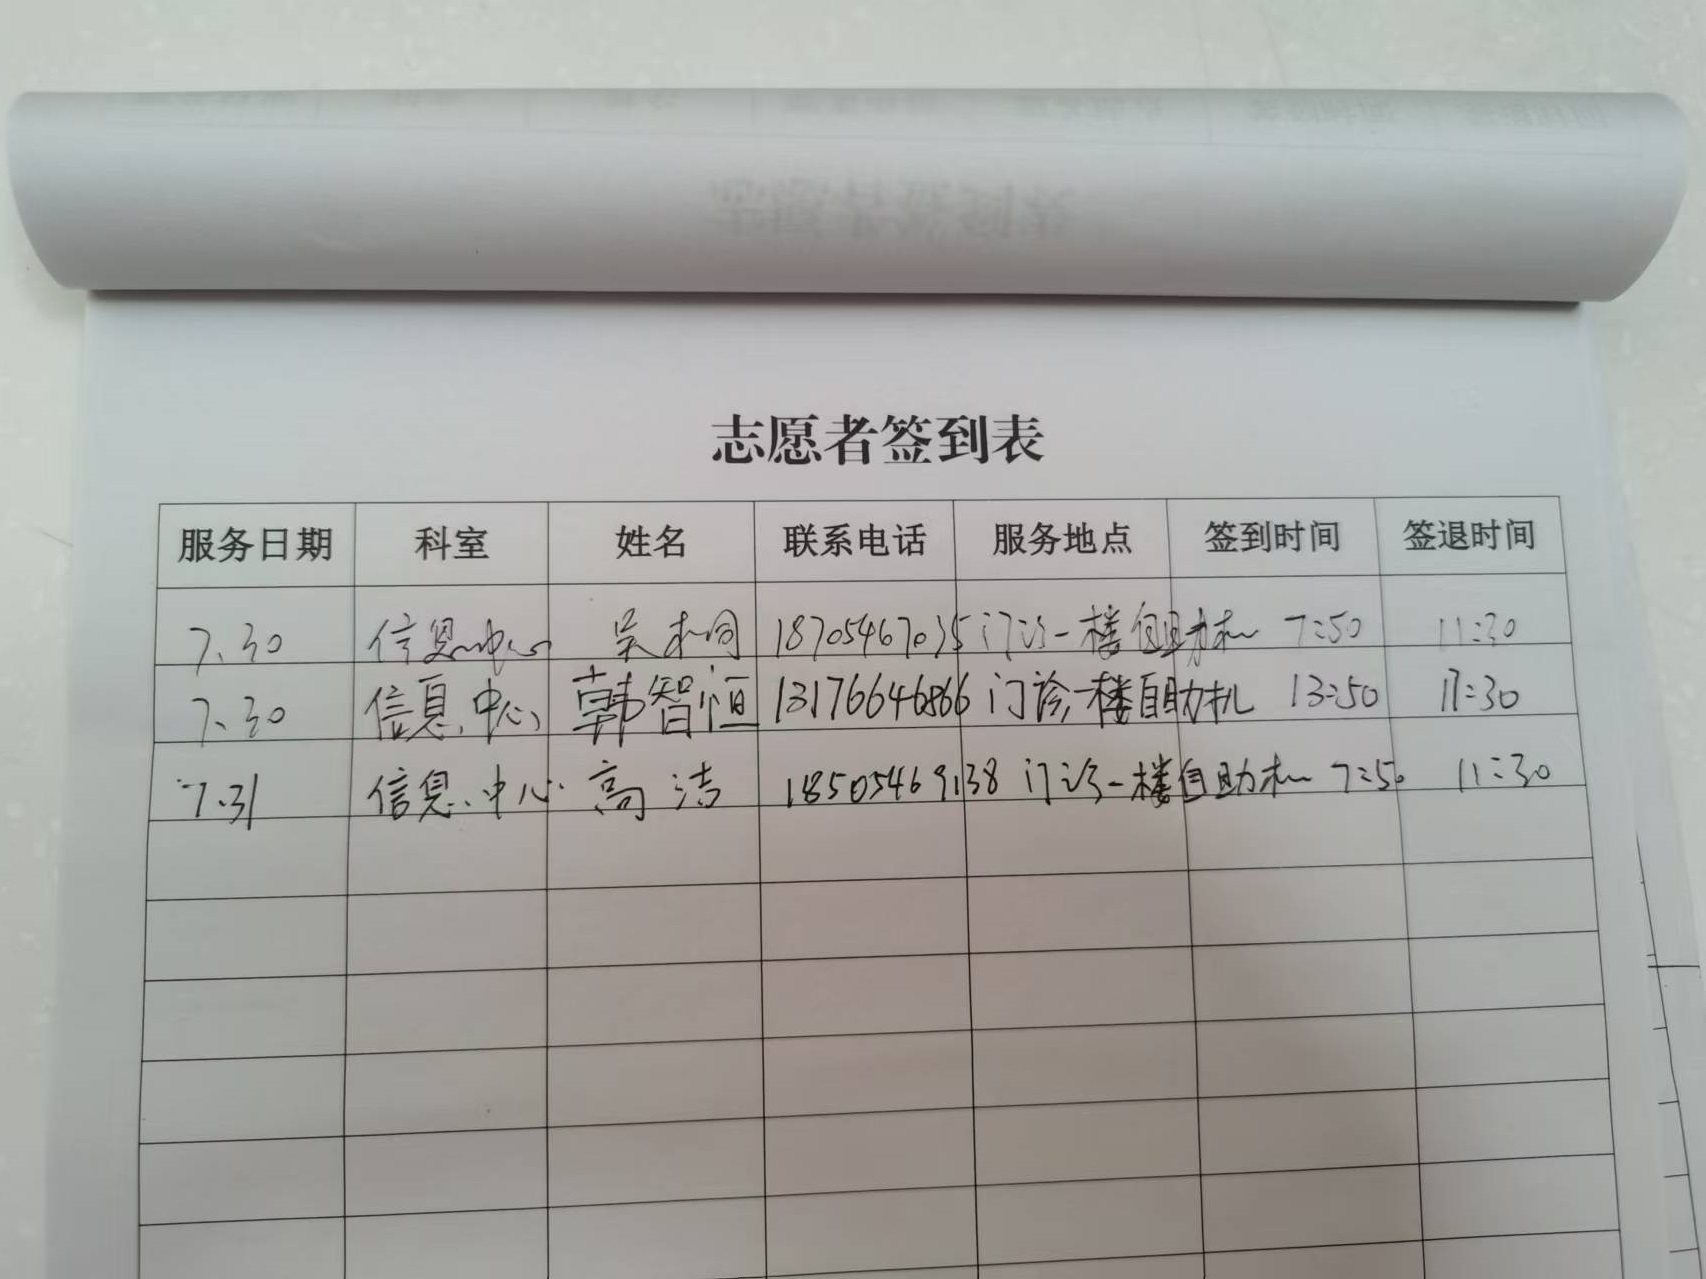 志愿者签到表
服务日期 科室 姓名 联系电话 服务地点 签到时间 签退时间
7.30 信息中心 吴木同 18705467035 门诊一楼自助机 7:50 11:30
7.30 信息中心 韩智恒 13176646866 门诊一楼自助机 13:50 17:30
7.31 信息中心 高洁 18505469138 门诊一楼自助机 7:50 11:30